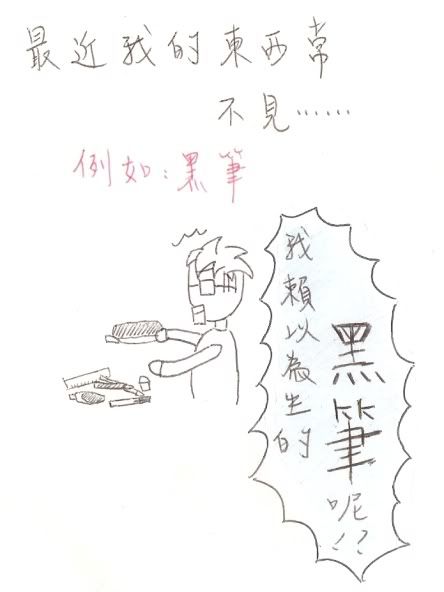 最近我的東西常
不見……
例如：黑筆
我賴以為生的
黑筆呢!?